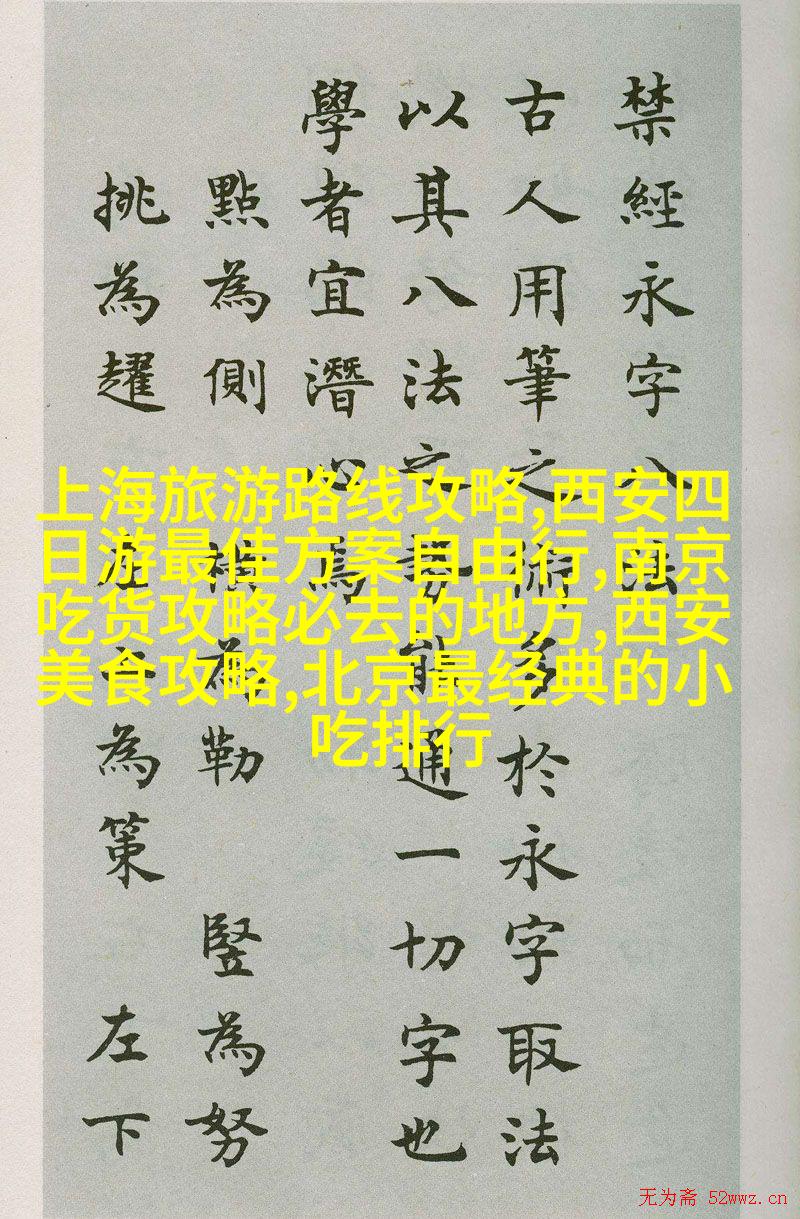 禁經永字八法
古人用筆之術多於永字取法
以其八法之勢能通一切字也
學者宜潛心焉
點為側 為勒 豎為努
挑為趯 左上為策 左下
上海旅游路线攻略,西安四
日游最佳方案自由行,南京
吃货攻略必去的地方,西安
美食攻略,北京最经典的小
吃排行
无为斋 52wwz.cn